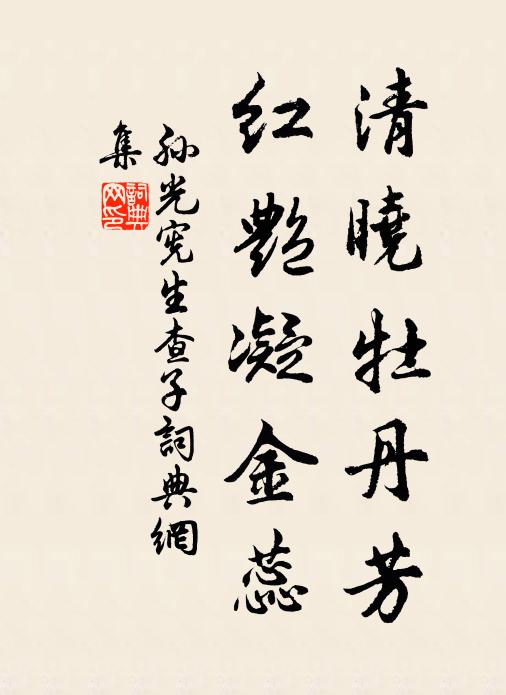 清曉牡丹芳
紅艷凝金蕊
孫光憲生查子詞典網
集
詞典網印